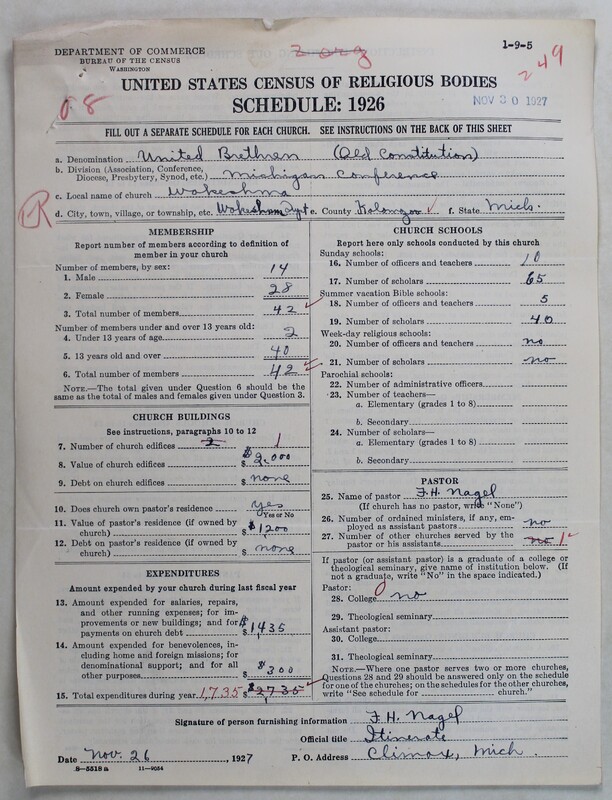 DEPARTMENT OF COMMERCE
BUREAU OF THE CENSUS
WASHINGTON
1-9-5
249
UNITED STATES CENSUS OF RELIGIOUS BODIES
SCHEDULE: 1926
08
NOV 30 1927
FILL OUT A SEPARATE SCHEDULE FOR EACH CHURCH. SEE INSTRUCTIONS ON THE BACK OF THIS SHEET
a. Denomination United Brethren (Old Constitution)
b. Division (Association, Conference, Diocese, Presbytery, Synod, etc.) Michigan Conference
c. Local name of church Wakeshma
d. City, town, village, or township, etc. Wakeshma Twpt e. County Kalamazoo f. State Mich.
R
MEMBERSHIP
Report number of members according to definition of member in your church
Number of members, by sex:
1. Male 14
2. Female 28
3. Total number of members 42
Number of members under and over 13 years old:
4. Under 13 years of age 2
5. 13 years old and over 40
6. Total number of members 42
NOTE.—The total given under Question 6 should be the same as the total of males and females given under Question 3.
CHURCH BUILDINGS
See instructions, paragraphs 10 to 12
7. Number of church edifices 2 1
8. Value of church edifices $2,000
9. Debt on church edifices $ none
10. Does church own pastor's residence yes
Yes or No
11. Value of pastor's residence (if owned by church) $1,200
12. Debt on pastor's residence (if owned by church) $ none
EXPENDITURES
Amount expended by your church during last fiscal year
13. Amount expended for salaries, repairs, and other running expenses; for improvements or new buildings; and for payments on church debt $1,435
14. Amount expended for benevolences, including home and foreign missions; for denominational support; and for all other purposes $300
15. Total expenditures during year 1,735 $2735
CHURCH SCHOOLS
Report here only schools conducted by this church
Sunday schools:
16. Number of officers and teachers 10
17. Number of scholars 65
Summer vacation Bible schools:
18. Number of officers and teachers 5
19. Number of scholars 40
Week-day religious schools:
20. Number of officers and teachers no
21. Number of scholars no
Parochial schools:
22. Number of administrative officers
23. Number of teachers—
a. Elementary (grades 1 to 8)
b. Secondary
24. Number of scholars—
a. Elementary (grades 1 to 8)
b. Secondary
PASTOR
25. Name of pastor F. H. Nagel
(If church has no pastor, write "None")
26. Number of ordained ministers, if any, employed as assistant pastors no
27. Number of other churches served by the pastor or his assistants no 1
If pastor (or assistant pastor) is a graduate of a college or theological seminary, give name of institution below. (If not a graduate, write "No" in the space indicated.)
Pastor:
28. College 0 no
29. Theological seminary
Assistant pastor:
30. College
31. Theological seminary
NOTE.—Where one pastor serves two or more churches, Questions 28 and 29 should be answered only on the schedule for one of the churches; on the schedules for the other churches, write "See schedule for church."
Signature of person furnishing information F. H. Nagel
Official title Itinerate
Date Nov. 26, 1927 P. O. Address Climax, Mich.
8-5518 a 11-9054